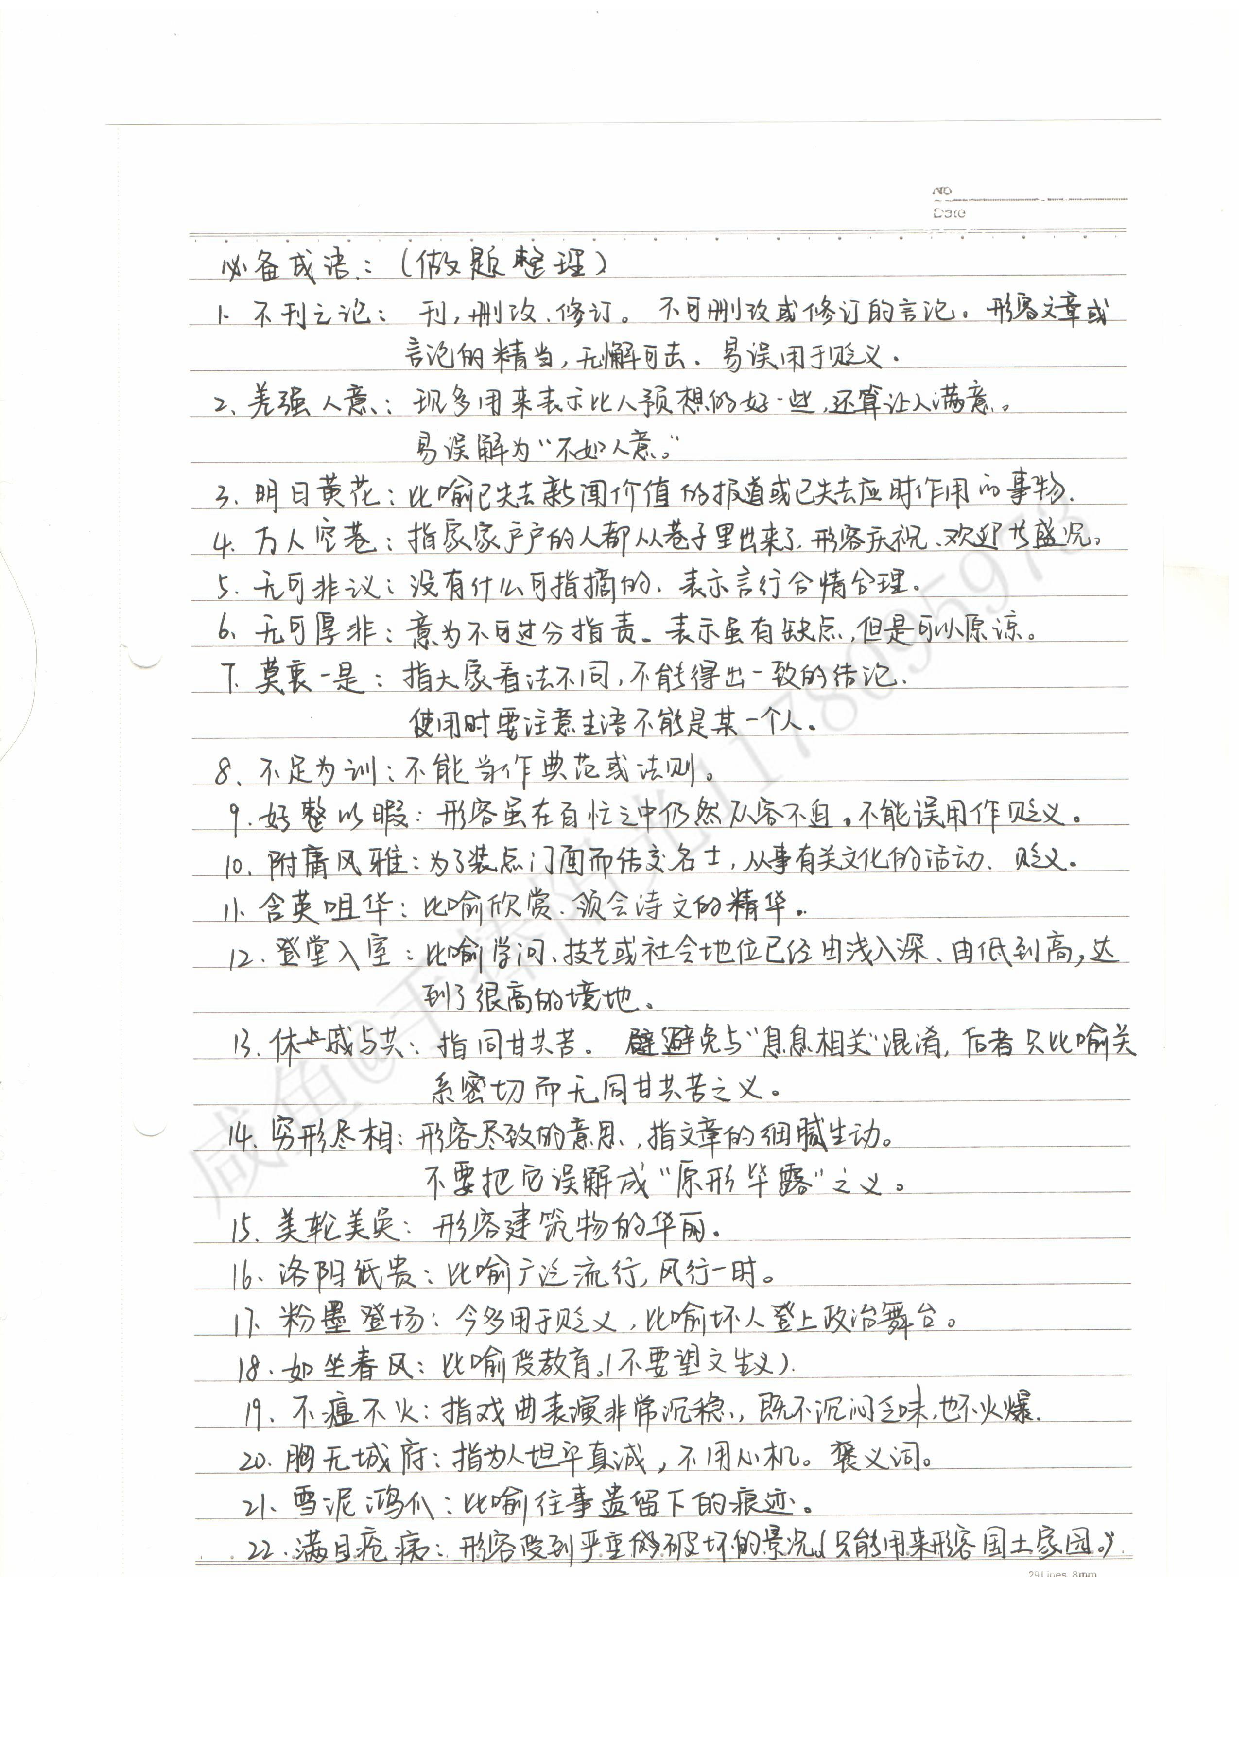 NO
Date
必备成语：（做题整理）
1. 不刊之论：刊，删改、修订。不可删改或修订的言论。形容文章或
言论的精当，无懈可击．易误用于贬义．
2、差强人意：现多用来表示比人预想的好一些，还算让人满意。
易误解为“不如人意。”
3、明日黄花：比喻已失去新闻价值的报道或已失去应时作用的事物．
4、万人空巷：指家家户户的人都从巷子里出来了．形容庆祝、欢迎等盛况。
5、无可非议：没有什么可指摘的．表示言行合情合理。
6、无可厚非：意为不可过分指责。表示虽有缺点，但是可以原谅。
7. 莫衷一是：指大家看法不同，不能得出一致的结论．
使用时要注意主语不能是某一个人。
8、不足为训：不能当作典范或法则。
9. 好整以暇：形容虽在百忙之中仍然从容不迫。不能误用作贬义。
10. 附庸风雅：为了装点门面而结交名士，从事有关文化的活动．贬义。
11. 含英咀华：比喻欣赏．领会诗文的精华。
12. 登堂入室：比喻学问、技艺或社会地位已经由浅入深、由低到高，达
到了很高的境地。
13. 休戚与共：指同甘共苦。避免与“息息相关”混淆，后者只比喻关
系密切而无同甘共苦之义。
14. 穷形尽相：形容尽致的意思，指文章的细腻生动。
不要把它误解成“原形毕露”之义。
15. 美轮美奂：形容建筑物的华丽。
16. 洛阳纸贵：比喻广泛流行，风行一时。
17. 粉墨登场：今多用于贬义，比喻坏人登上政治舞台。
18. 如坐春风：比喻受教育。（不要望文生义）．
19、不瘟不火：指戏曲表演非常沉稳，既不沉闷乏味，也不火爆．
20. 胸无城府：指为人坦平真诚，不用心机。褒义词。
21. 雪泥鸿爪：比喻往事遗留下的痕迹。
22. 满目疮痍：形容受到严重破坏的景况（只能用来形容国土家园。）
29Lines 8mm